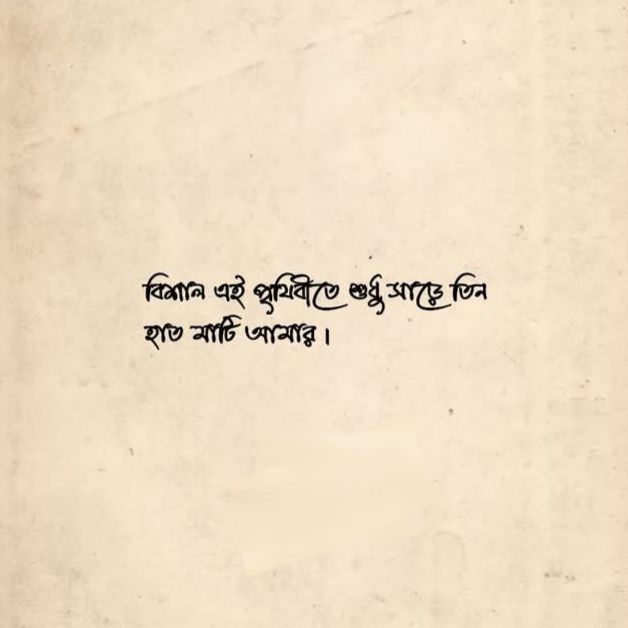 বিশাল এই পৃথিবীতে শুধু সাড়ে তিন
হাত মাটি আমার।